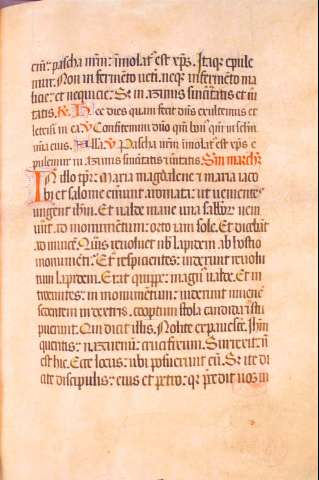 eni(m) pascha n(ost)r(u)m: i(m)molat(us) est xp(istu)s. Itaq(ue) epule
mur. Non in ferme(n)to uet(er)i. neq(ue) in ferme(n)to ma
licie: et nequicie: Se(d) in azimis sinc(er)itatis et u(er)i
tatis. Hec dies quam fecit d(omi)n(u)s exultemus et
letem(ur) in ea. V Confitemini d(omi)no q(uonia)m bon(us) q(uonia)m in sec(u)l(u)m
m(isericordi)a eius. All(elui)a. V Pascha n(ost)r(u)m i(m)molat(us) est xp(istu)s
epulemur in azimis sinc(er)itatis (et) u(er)itatis. S(e)c(undu)m marchu(m)
In illo t(em)p(o)r(e): Maria magdalene: (et) maria iaco
bi et salome emerunt aromata: ut uenientes
ungerent ih(esu)m. Et ualde mane una sabb(at)or(um) ueni
unt. ad monumentu(m): orto iam sole. Et dicebant
ad inuice(m). Quis reuoluet nob(is) lapidem ab hostio
monumenti: Et respicientes: uiderunt reuolu
tum lapidem. Erat quippe: magn(us) ualde. Et in
troeuntes: in monumentum: uiderunt iuuene(m)
sedentem in dextris. coop(er)tum stola candida: (et) obstu
puerunt. Qui dicit illis. Nolite expauescere. Ih(esu)m
queritis: nazarenu(m): crucifixum. Surrexit: n(on)
est hic. Ecce locus: ubi posuerunt eu(m). Se(d) ite di
cite discipulis: eius et petro: q(uia) p(re)cedit uos in